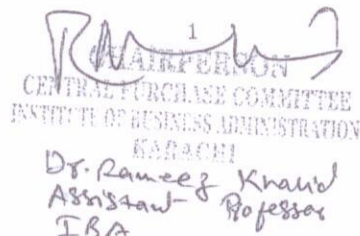 1
CHAIRPERSON
CENTRAL PURCHASE COMMITTEE
INSTITUTE OF BUSINESS ADMINISTRATION
KARACHI
Dr. Rameez Khalid
Assistant Professor
IBA